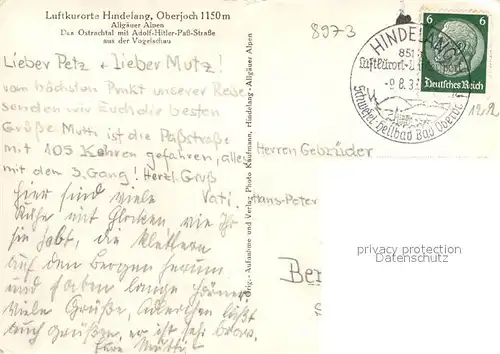 Luftkurorte Hindelang, Oberjoch 1150m
Allgäuer Alpen
Das Ostrachtal mit Adolf-Hitler-Paß-Straße
aus der Vogelschau
8973
HINDELANG
Luftkurort
8.3
Schwefel-Heilbad Bad Oberdorf
6 6
Deutsches Reich
Lieber Petz + Lieber Mutz!
vom höchsten Punkt unserer Reise
senden wir Euch die besten
Grüße Mutti ist die Paßstraße
mit 105 Kehren gefahren, alles
mit dem 3. Gang! Herzl. Gruß
Vati.
Hier sind viele
Kühe mit Glocken, wie Ihr
sie habt, die klettern
auf den Bergen herum
und haben lange Hörner
Viele Grüße, läßt
auch grüßen, er ist sehr brav.
Eure Mutti
Orig.-Aufnahme und Verlag Photo Kaufmann, Hindelang-Allgäuer Alpen
Herren Gebrüder
Hans-Peter
Ber
privacy protection
Datenschutz